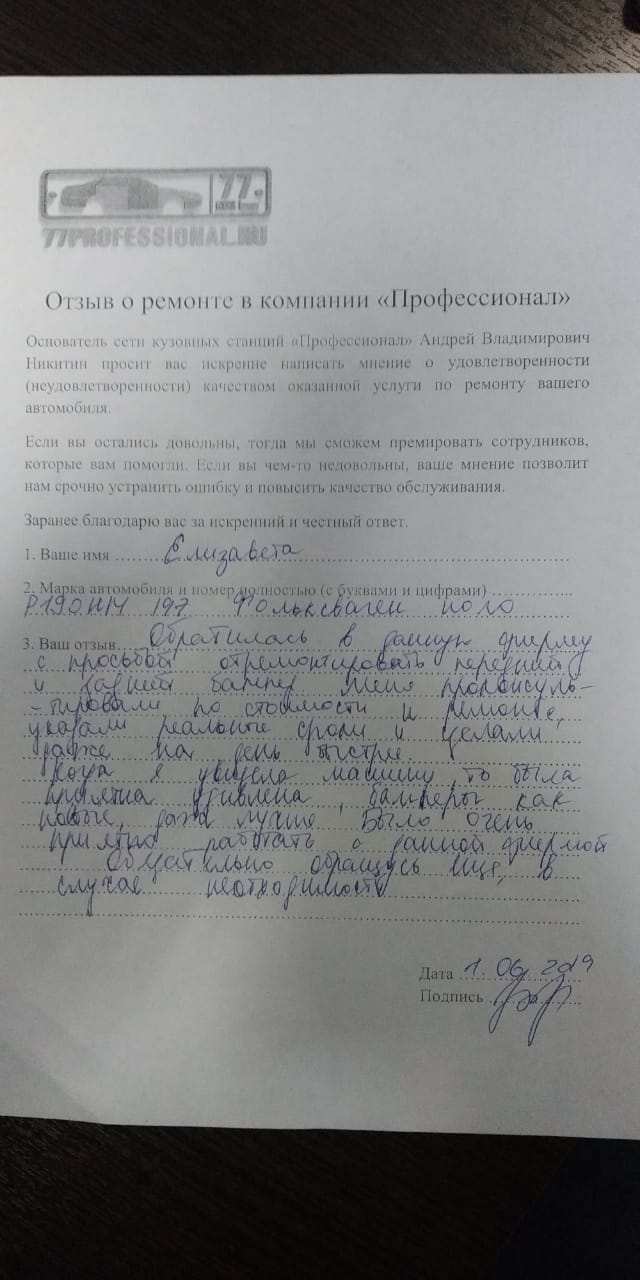 77
77PROFESSIONAL.RU
Отзыв о ремонте в компании «Профессионал»
Основатель сети кузовных станций «Профессионал» Андрей Владимирович
Никитин просит вас искренне написать мнение о удовлетворенности
(неудовлетворенности) качеством оказанной услуги по ремонту вашего
автомобиля.
Если вы остались довольны, тогда мы сможем премировать сотрудников,
которые вам помогли. Если вы чем-то недовольны, ваше мнение позволит
нам срочно устранить ошибку и повысить качество обслуживания.
Заранее благодарю вас за искренний и честный ответ.
1. Ваше имя Елизавета
2. Марка автомобиля и номер полностью (с буквами и цифрами)
197 Фольксваген поло
3. Ваш отзыв Обратилась в данную фирму
с просьбой отремонтировать передний
и задний бампер. Меня проконсуль-
-тировали по стоимости и ремонте,
указали реальные сроки и сделали
даже на день быстрее.
Когда я увидела машину, то была
приятна удивлена, бамперы как
новые, даже лучше. Было очень
приятно работать с данной фирмой
Обязательно обращусь еще, в
случае необходимости
Дата 1. 06. 2019
Подпись